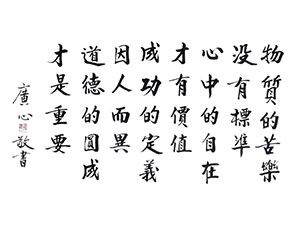 物質的苦樂
沒有標準
心中的自在
才有價值
成功的定義
因人而異
道德的圓成
才是重要
廣心敬書